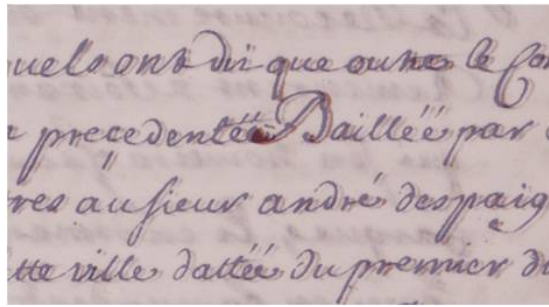 uels ont dit que outre le Con
precedentée Baillée par
tres au sieur andré despaig
tte ville dattée du premier d